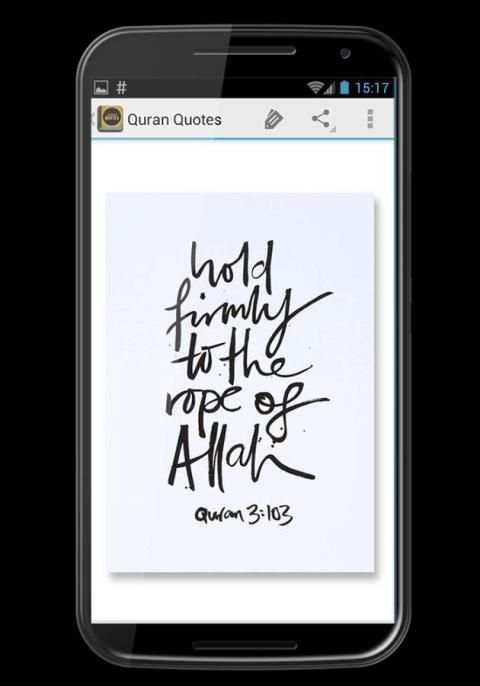 # 15:17
Quran Quotes
hold
firmly
to the
rope of
Allah
Quran 3:103